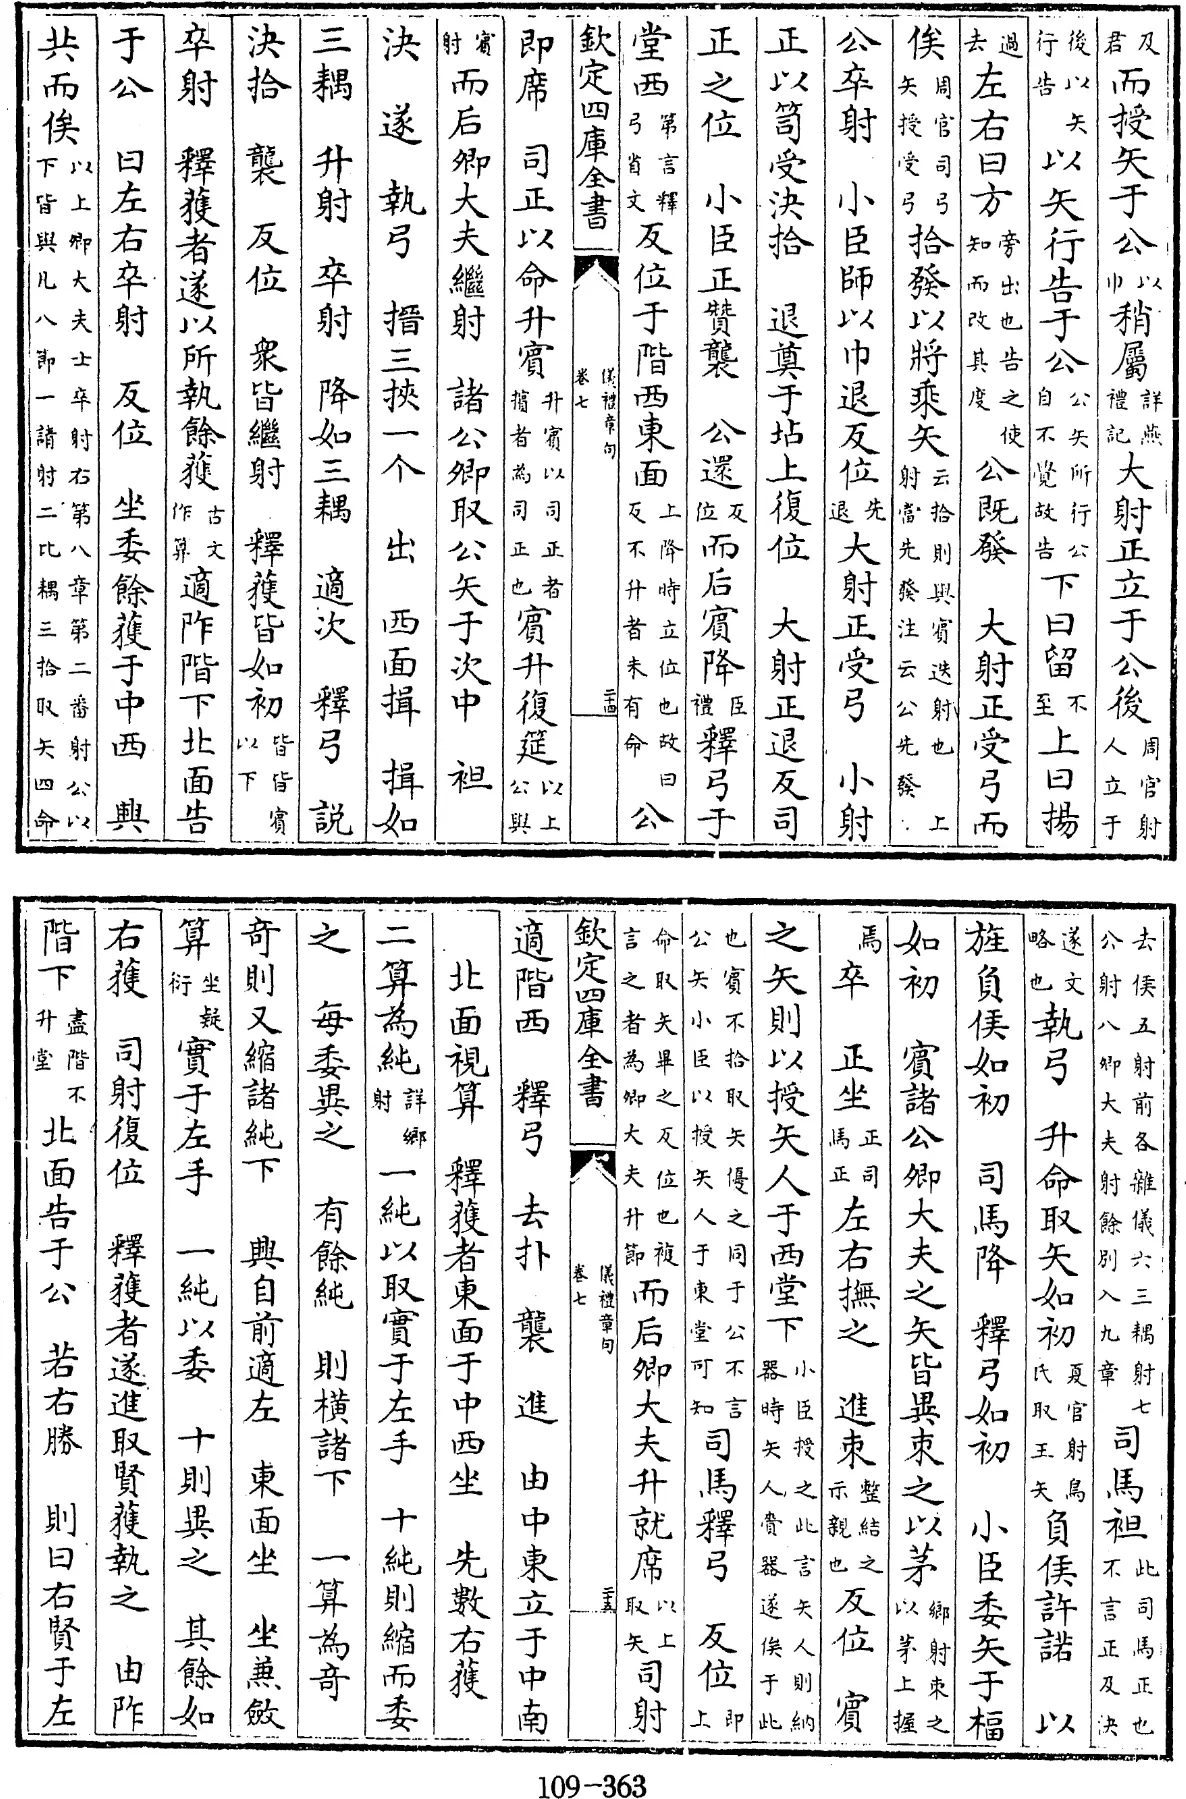 及君而授矢于公以巾稍屬詳燕禮記大射正立于公後周官射人立于
後以矢行告以矢行告于公公矢所行公自不覺故告下曰留不至上曰揚
過去左右曰方旁出也告之使知而改其度公既發　大射正受弓而
俟周官司弓矢授受弓拾發以將乘矢云拾則與賓迭射也上射當先發注云公先發
公卒射　小臣師以巾退反位先退大射正受弓　小射
正以笴受決拾　退奠于坫上復位　大射正退反司
正之位　小臣正贊襲　公還反位而后賓降臣禮釋弓于
堂西第言釋弓省文反位于階西東面上降時立位也故曰反不升者未有命公
欽定四庫全書　儀禮章句卷七　二十四
即席　司正以命升賓升賓以司正者擯者為司正也賓升復筵以上公與
賓射而后卿大夫繼射　諸公卿取公矢于次中　袒
決　遂　執弓　搢三挾一个　出　西面揖　揖如
三耦　升射　卒射　降如三耦　適次　釋弓　説
決拾　襲　反位　衆皆繼射　釋獲皆如初皆皆賓以下
卒射　釋獲者遂以所執餘獲古文作算適阼階下北面告
于公　曰左右卒射　反位　坐委餘獲于中西　興
共而俟以上卿大夫士卒射右第八章第二番射公以下皆與凡八節一請射二比耦三拾取矢四命
去侯五射前各雜儀六三耦射七公射八卿大夫射餘别入九章司馬袒此司馬正也不言正及決
遂文略也執弓　升命取矢如初夏官射鳥氏取王矢負侯許諾　以
旌負侯如初　司馬降　釋弓如初　小臣委矢于楅
如初　賓諸公卿大夫之矢皆異束之以茅鄉射束之以茅上握
焉卒　正坐正司馬正左右撫之　進束整結之示親也反位　賓
之矢則以授矢人于西堂下小臣授之此言矢人則納器時矢人賫器遂俟于此
也賓不拾取矢優之同于公不言公矢小臣以授矢人于東堂可知司馬釋弓　反位即上
命取矢畢之反位也複言之者為卿大夫升節而后卿大夫升就席以上取矢司射
欽定四庫全書　儀禮章句卷七　二十五
適階西　釋弓　去扑　襲　進　由中東立于中南
北面視算　釋獲者東面于中西坐　先數右獲
二算為純詳鄉射一純以取實于左手　十純則縮而委
之　每委異之　有餘純　則横諸下　一算為奇
奇則又縮諸純下　興自前適左　東面坐　坐兼斂
算坐疑衍實于左手　一純以委　十則異之　其餘如
右獲　司射復位　釋獲者遂進取賢獲執之　由阼
階下盡階不升堂北面告于公　若右勝　則曰右賢于左
109-363